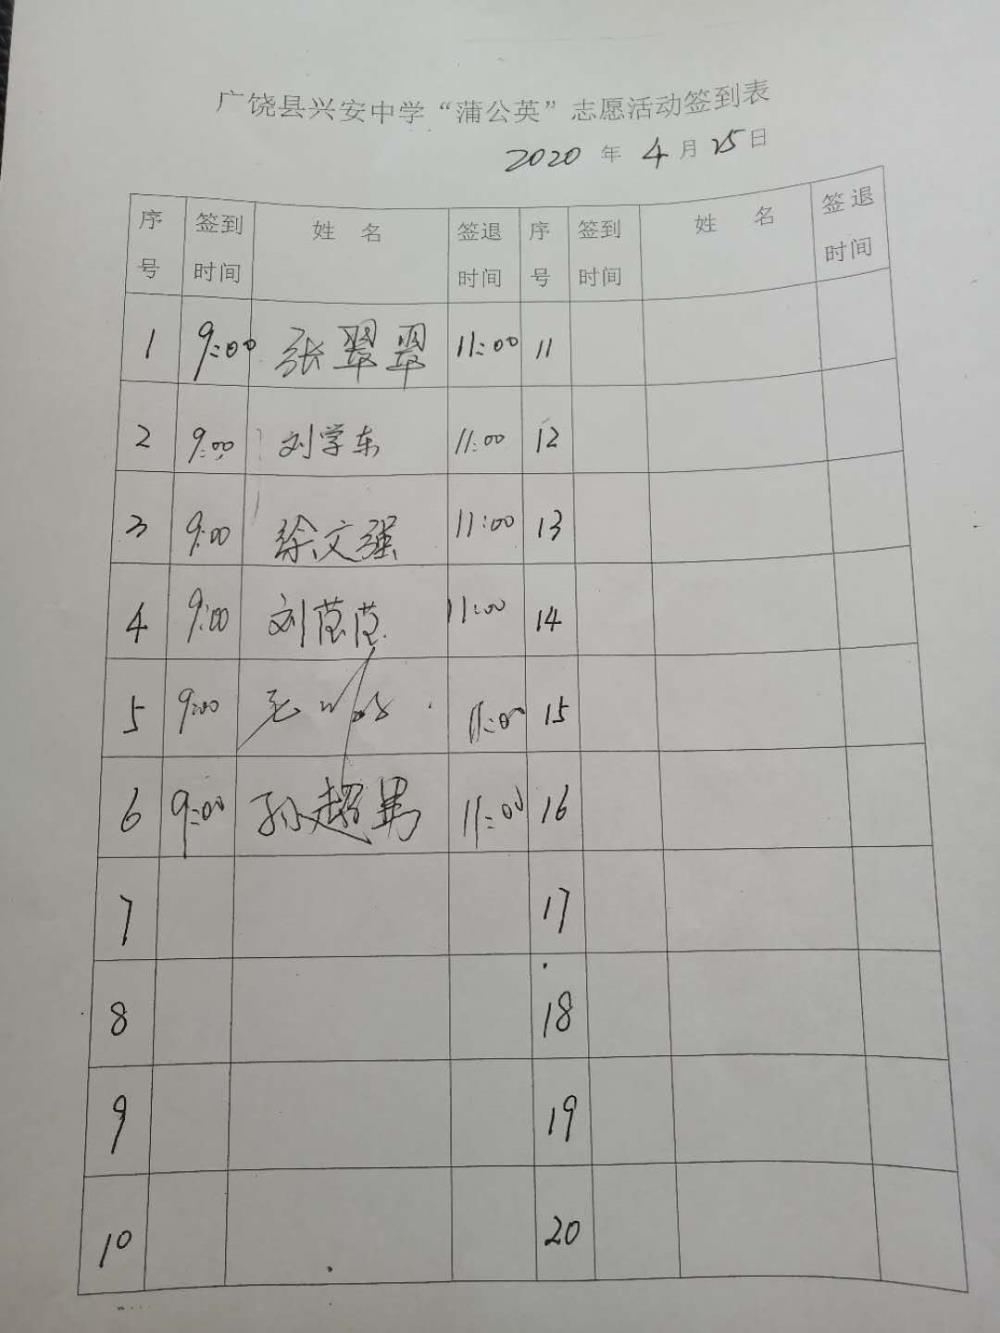 广饶县兴安中学“蒲公英”志愿活动签到表
2020 年 4 月 25 日
序号 签到时间 姓 名 签退时间 序号 签到时间 姓 名 签退时间
1 9:00 张翠翠 11:00 11
2 9:00 刘学东 11:00 12
3 9:00 徐文强 11:00 13
4 9:00 刘 11:00 14
5 9:00 11:00 15
6 9:00 孙超男 11:00 16
7 17
8 18
9 19
10 20